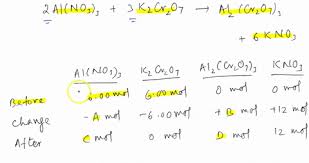 2Al(NO₃)₃ + 3 K₂Cr₂O₇ → Al₂(Cr₂O₇)₃
+ 6 KNO₃
Al(NO₃)₃ K₂Cr₂O₇ Al₂(Cr₂O₇)₃ KNO₃
Before 6.00 mol 6.00 mol 0 mol 0 mol
change -A mol -6.00 mol +B mol +12 mol
After C mol 0 mol D mol 12 mol